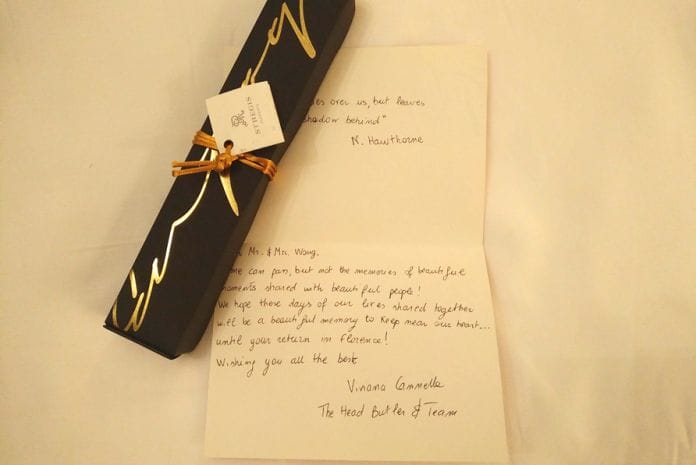 ST REGIS
over us, but leaves
shadow behind"
N. Hawthorne
Mr. & Mrs. Wong,
me can pass, but not the memories of beautiful
moments shared with beautiful people!
We hope these days of our lives shared together
will be a beautiful memory to keep near our heart...
until your return in Florence!
Wishing you all the best
The Head Butler & Team